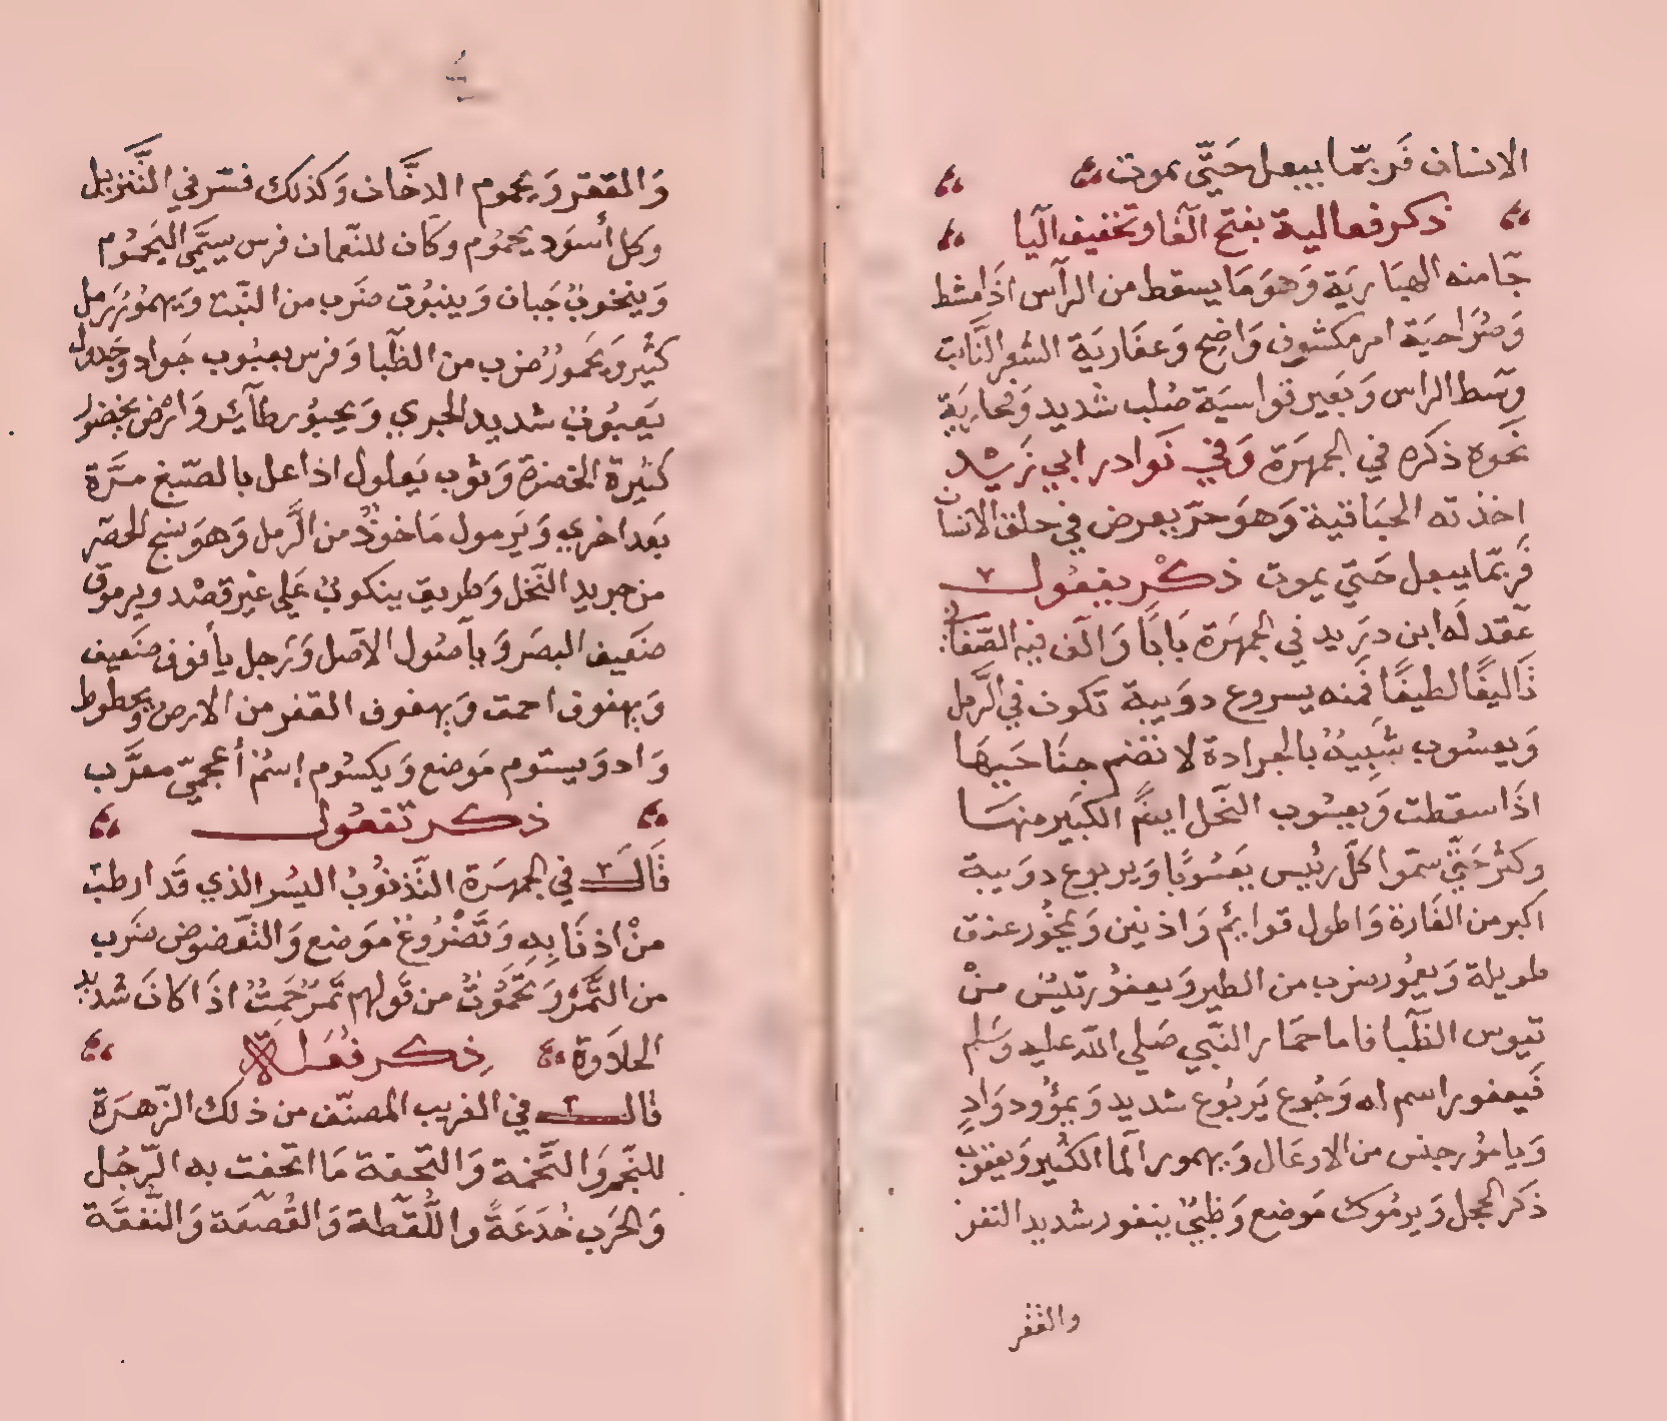 الانسان فَربّما يبعل حَتَّى يموت
ذكر فعالية بفتح الفا وتخفيف اليا
جّا منه الهبَارِيَة وَهوَ مَا يسقط من الرآس اذَا مشط
وَصُرَاحيَة امر مكشوف وَاضِح وَعفَاريَة الشعر النَّابت
وسَط الراس وَبَعير قواسيَة صُلب شديد وَقحاريَة
نحَوه ذكَره في الجمهَرَة وَفي نَوادر ابي زَيد
اخذته الحبَاقية وَهوَ حرّ يعرض في حلق الانسان
فَربّما يبعل حَتيّ يموت ذكْر يفعُول
عَقد لَه ابن درَيد في الجمهَرَة بَابًا وَالّف فيه الصّغاني
تَاليفًا لطيفًا فمنه يسروع دوَيبة تكون في الرَّمل
وَيعسُوب شَبِيهٌ بالجرادة لا تضم جنَاحَيهَا
اذَا سقطت وَيعسُوب النحَل ايضًا الكبَير منهَا
وكثر حَتيّ سمّوا كلّ رئيس يَعسُوبًا وَيربوع دوَيبة
اكبر من الفَارة وَاطول قوايم وَاذنين وَيمخُور عنق
طويلة وَيعمُور ضرب من الطير وَيعفُور تيسٌ منْ
تيوس الظّبا فاما حمَار النَّبي صَلي اللّه عليه وَسَلم
فَيعفور اسم له وَجُوع يَربُوع شديد وَيمؤُود وَادٍ
وَيامُور جنس من الاوعَال وَيهمور الما الكثير وَيعقوب
ذكَر الحجل وَيرمُوك مَوضع وَظبيٌ ينفور شديد النفز
والقفر
٤
وَالقفر وَيحموم الدخَّان وَكذلك فسّر في التَّنزيل
وكل أسوَد يحمُوم وكَان للنّعمان فرس يسَمَّى اليَحمُوم
وَينخوبٌ جَبان وَينبُوت ضَرب من النَّبت وَيهمُور رَمل
كثير وَيحَمورٌ ضرب من الظّبا وَفرس يعبُوب جَواد وجَدول
يَعبُوبٌ شديد الجري وَيحبُور طآير وَارْض يخضور
كثيرة الخضرَة وَثوب يَعلول اذا عل بالصّبغ مَرَّة
بَعد اخري وَيَرمول مَاخوذٌ من الرَّمل وَهوَ نسج الحصر
من جريد النّخل وَطريق ينكوبٌ عَلي غيْر قصْد ويرموق
ضَعيف البصَر وَيآصُول الاصل وَرَجل يأفوف ضَعيف
وَيهفوف احمق وَيهفوف القفر من الارض ويحطوط
وَاد وَيستوم مَوضع وَيكسُوم إسمٌ أعجميّ معرَّب
ذكر تفعُول
قَالَ في الجمهَرَة التَّذنُوبُ البُسر الذي قَد ارطبَ
منْ اذنَابِهِ وَتَضرُوعٌ مَوضع وَالتَّعضوض ضَرب
من التَّمر وَتَحمُوتٌ من قَولهم تَمرٌ حَمِتٌ اذَا كَانَ شديد
الحلاوَة ذِكر فُعَلة
قال في الغريب المصنّف من ذلك الزّهَرَة
للنجّم وَالتُّخمَة وَالتُّحفة مَا اتحفت به الرّجُل
وَالحَرب خُدَعَةً واللُّقَطة وَالقُصَعَة وَالنُّفقَة